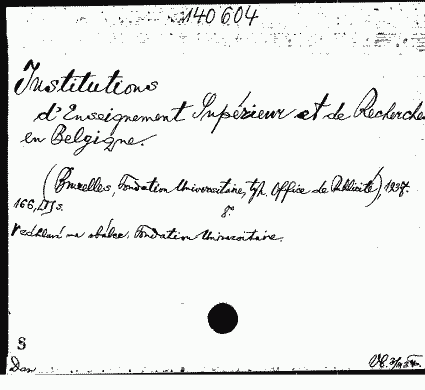 140604
Institutions
d'Enseignement Supérieur et de Recherches
en Belgique.
(Bruxelles, Fondation Universitaire, typ. Office de Publicité), 1937.
166, [I] s. 8°.
V záhlaví na obálce: Fondation Universitaire.
8
Dar